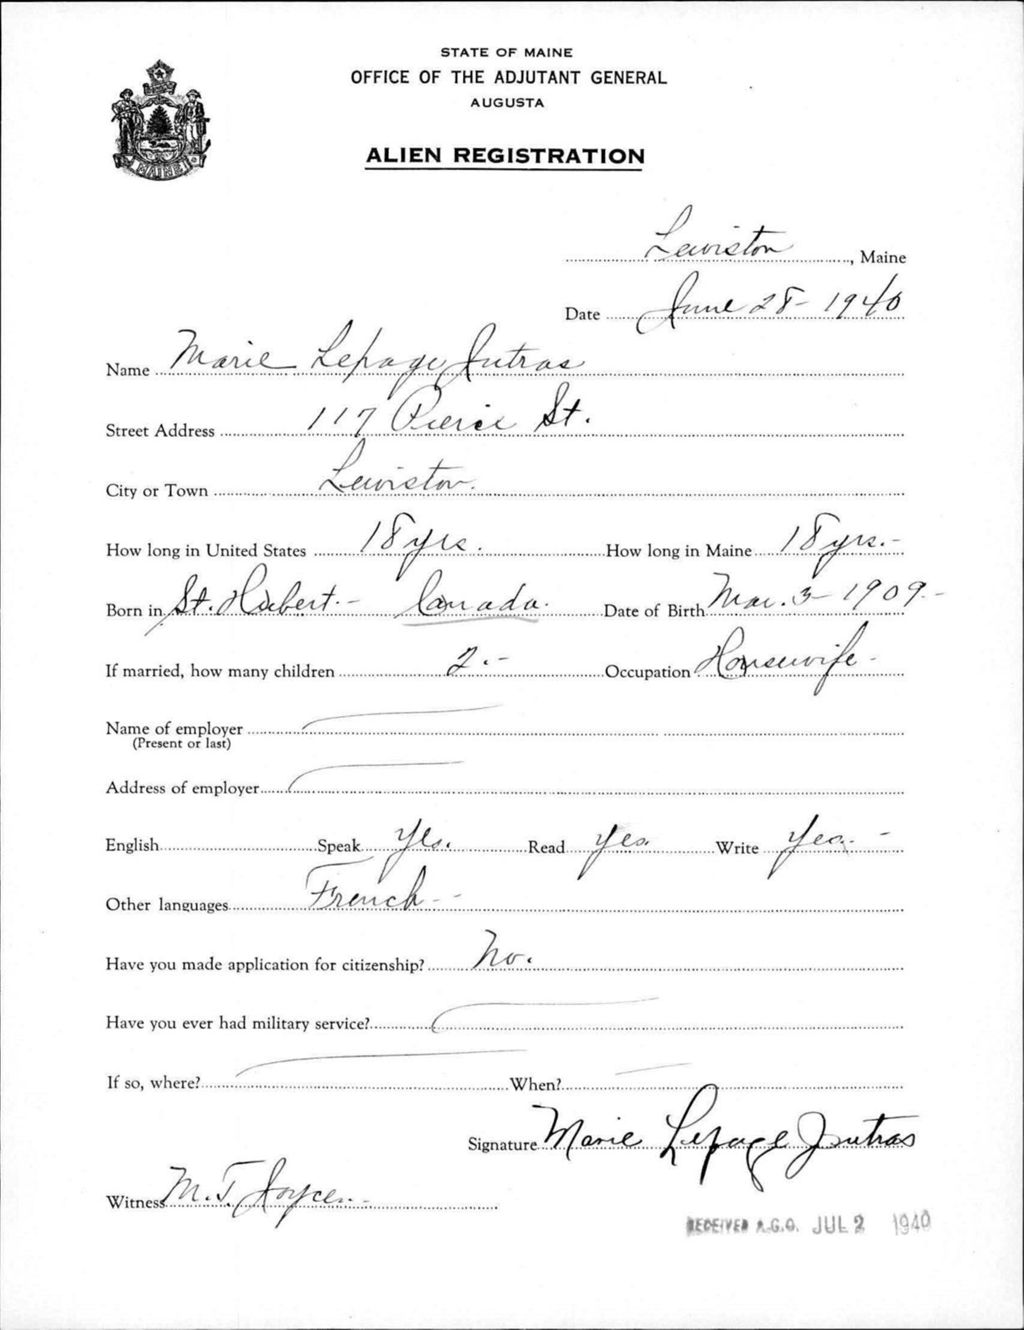 STATE OF MAINE
OFFICE OF THE ADJUTANT GENERAL
AUGUSTA
MAINE
ALIEN REGISTRATION
Lewiston, Maine
Date June 28 - 1940
Name Marie Lepage Jutras
Street Address 117 Pierce St.
City or Town Lewiston.
How long in United States 18 yrs. How long in Maine 18 yrs. -
Born in St. Hubert. - Canada. Date of Birth Mar. 3 - 1909. -
If married, how many children 2. - Occupation Housewife -
Name of employer
(Present or last)
Address of employer
English Speak Yes. Read Yes. Write Yes. -
Other languages French - -
Have you made application for citizenship? No.
Have you ever had military service?
If so, where? When?
Signature Marie Lepage Jutras
Witness M. T. Joyce. -
RECEIVED A.G.O. JUL 2 1940